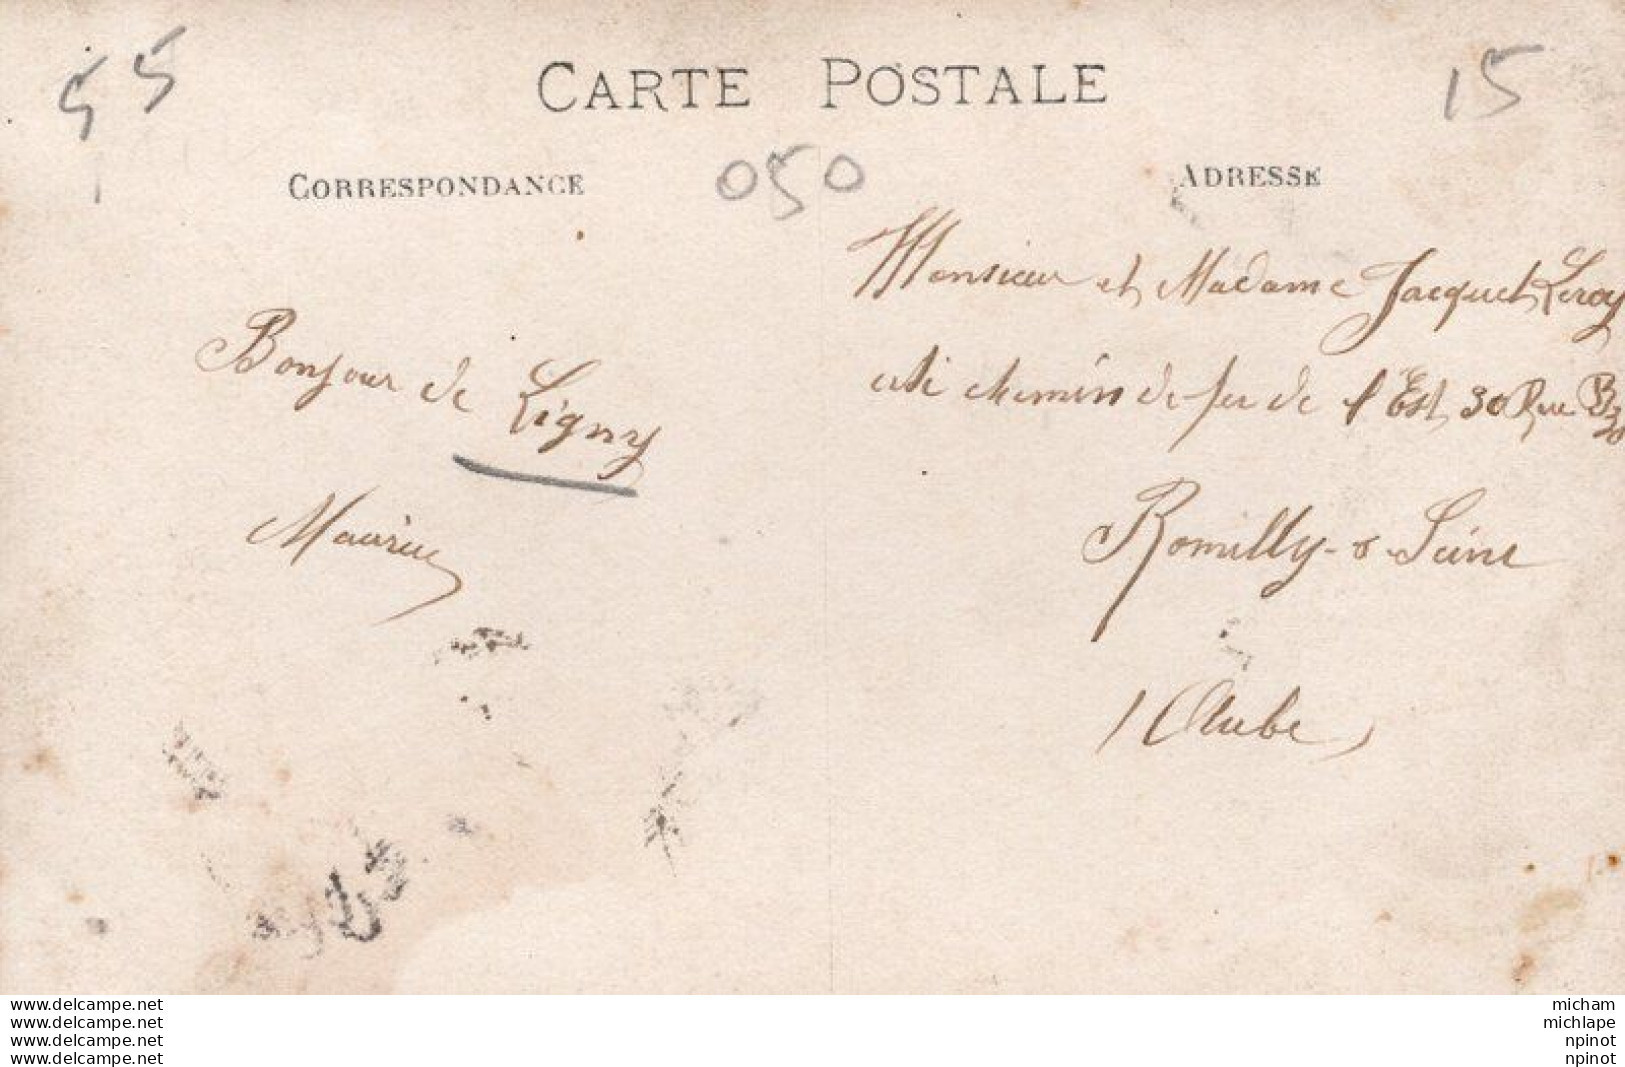 55
CARTE POSTALE
15
CORRESPONDANCE
050
ADRESSE
Bonjour de Ligny
Maurice
Monsieur et Madame Jacquet Leroy
chemin de fer de l'Est 30 Rue
Romilly-s-Seine
(Aube)
www.delcampe.net
www.delcampe.net
www.delcampe.net
www.delcampe.net
micham
michlape
npinot
npinot